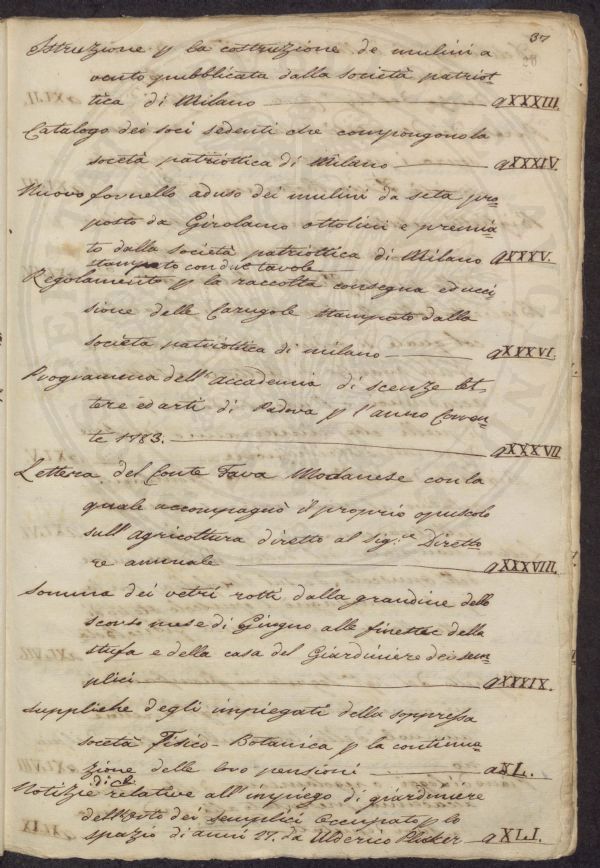 37
Istruzione p la costruzione de mulini a
vento pubblicata dalla società patriot
tica di Milano — aXXXIII.
Catalogo dei soci sedenti che compongono la
società patriottica di Milano — aXXXIV.
Nuovo fornello aduso dei mulini da seta pro
posto da Girolamo ottolini e premia
to dalla società patriottica di Milano aXXXV.
stampato con due tavole
Regolamento p la raccolta consegna educci
sione delle Carugole stampato dalla
società patriottica di milano — aXXXVI.
Programma dell'accademia di scenze let
tere ed arti di Padova p l'anno Corren
te 1783. — aXXXVII
Lettera del Conte Fava Modanese con la
quale accompagnò il proprio opuscolo
sull'agricoltura diretto al sig.e Diretto
re annuale — aXXXVIII.
Somma dei vetri rotti dalla grandine dello
scorso mese di Giugno alle finestre della
stufa e della casa del Giardiniere dei sem
plici — aXXXIX.
Suppliche degli inpiegati della soppressa
società Fisico-Botanica p la continua
zione delle loro pensioni — aXL.
Notizie relative all'inpiego di giardiniere
dell'orto dei semplici occupato p lo
spazio di anni 17. da Ulderico Plucker — aXLI.